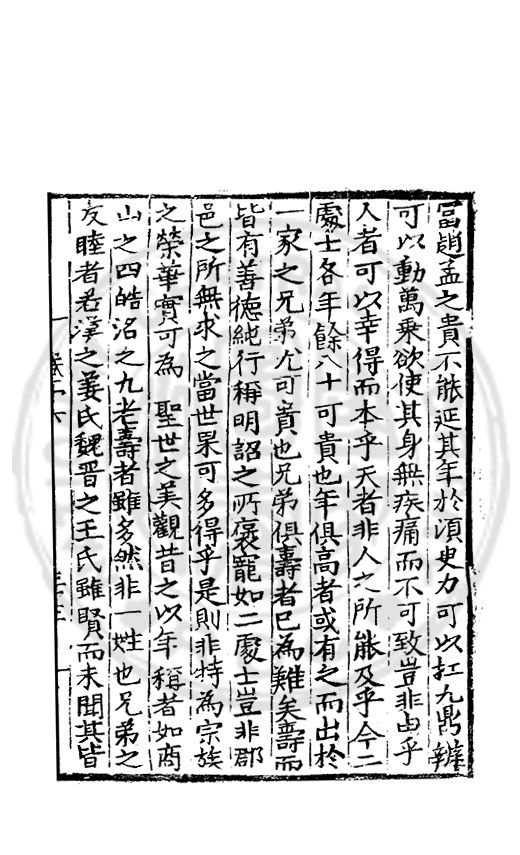 富趙孟之貴不能延其年於須臾力可以扛九鼎辨
可以動萬乘欲使其身無疾痛而不可致豈非由乎
人者可以幸得而本乎天者非人之所能及乎今二
處士各年餘八十可貴也年俱高者或有之而出於
一家之兄弟尤可貴也兄弟俱壽者已為難矣壽而
皆有善德純行稱明詔之所褒寵如二處士豈非郡
邑之所無求之當世果可多得乎是則非特為宗族
之榮華實可為 聖世之美觀昔之以年稱者如商
山之四皓洛之九老壽者雖多然非一姓也兄弟之
友睦者若漢之姜氏魏晋之王氏雖賢而未聞其皆
卷二六